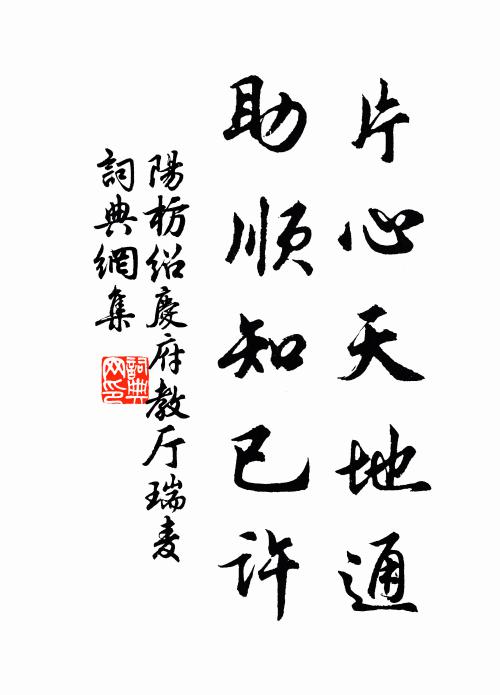 片心天地通
助顺知已许
陽枋绍慶府教厅瑞麦
詞典網集
詞典网印